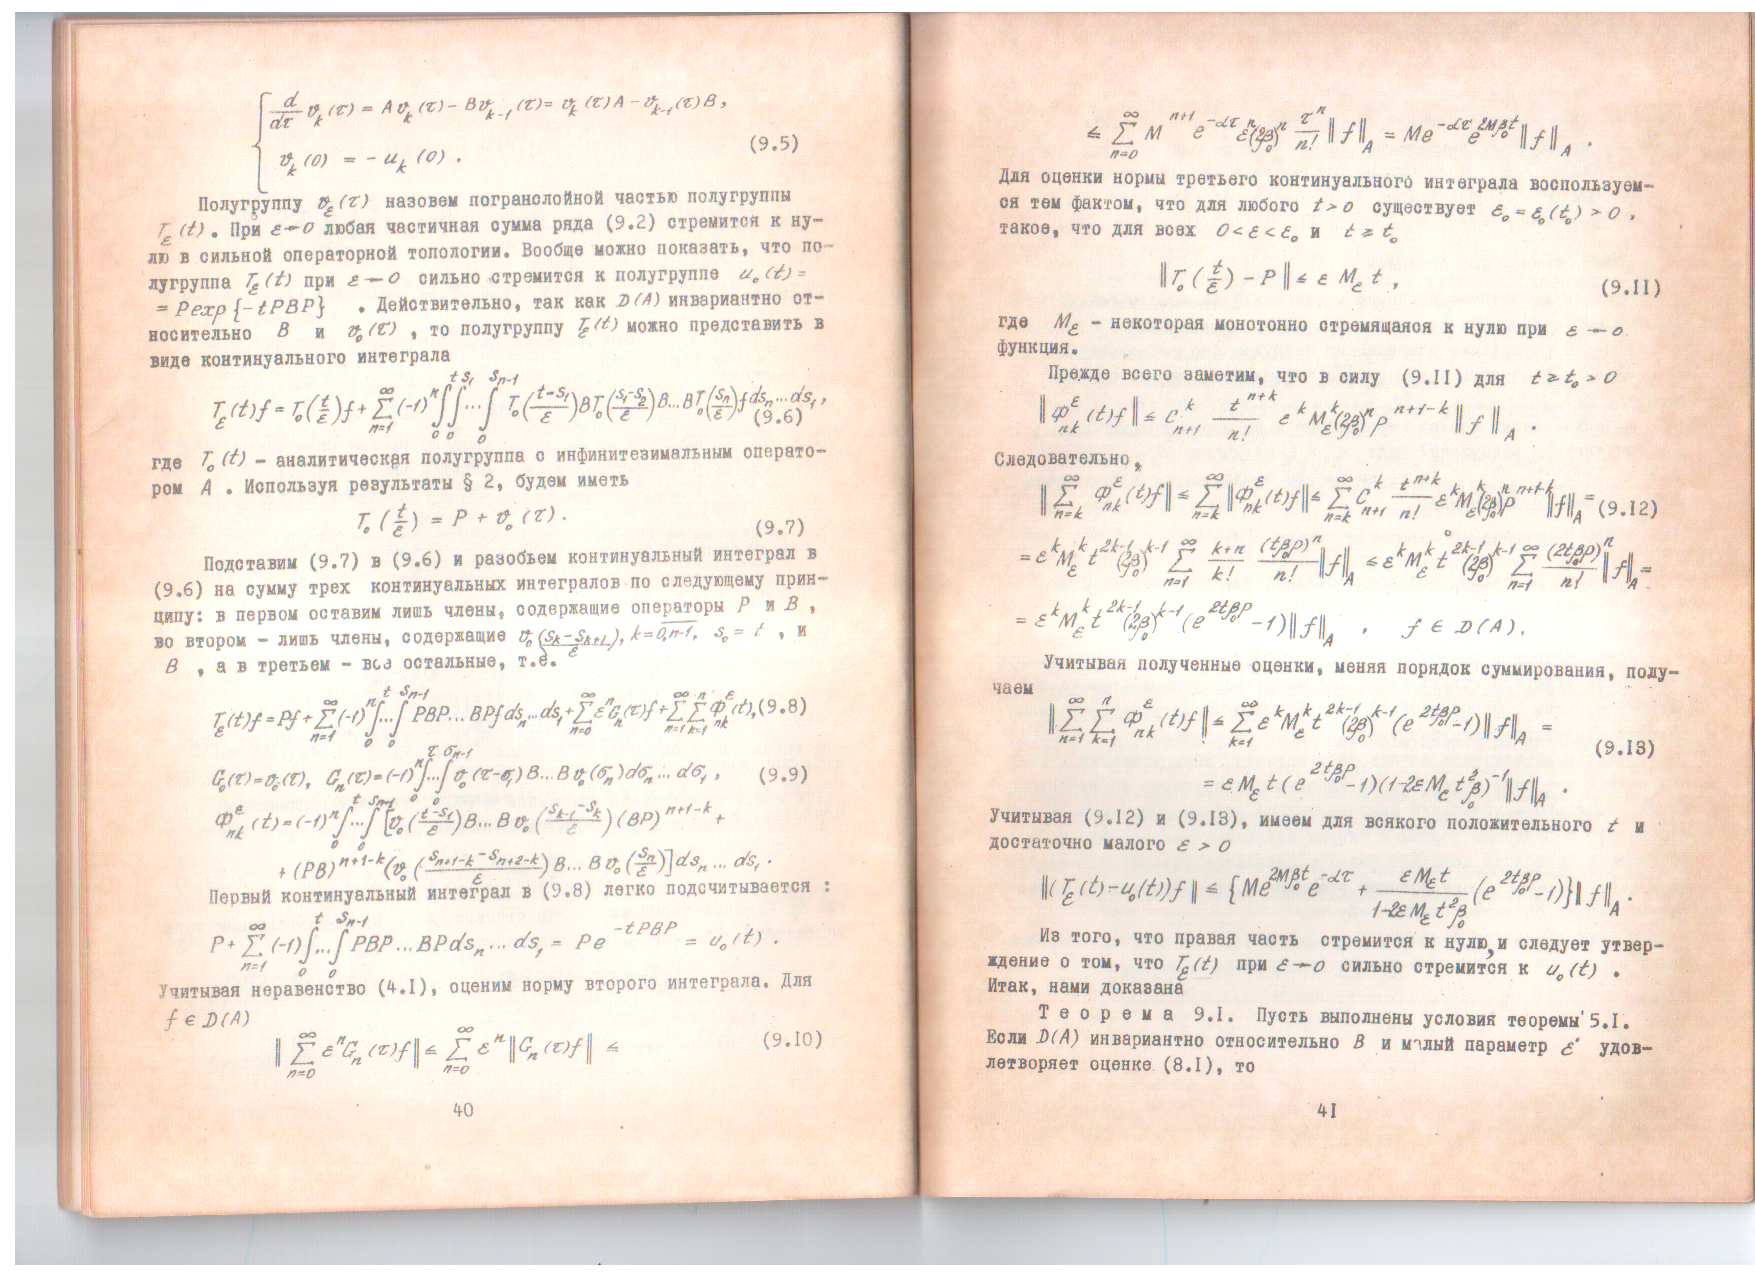 d/dτ ϑ_k(τ) = Aϑ_k(τ) − Bϑ_{k-1}(τ) = ϑ_k(τ)A − ϑ_{k-1}(τ)B,
(9.5)
ϑ_k(0) = − u_k(0).
Полугруппу ϑ_ε(τ) назовем погранслойной частью полугруппы
T_ε(t). При ε→0 любая частичная сумма ряда (9.2) стремится к ну-
лю в сильной операторной топологии. Вообще можно показать, что по-
лугруппа T_ε(t) при ε→0 сильно стремится к полугруппе u_0(t) =
= P exp{−tPBP} . Действительно, так как D(A) инвариантно от-
носительно B и ϑ_0(τ) , то полугруппу T_ε(t) можно представить в
виде континуального интеграла
T_ε(t)f = T_0(t/ε)f + Σ_{n=1}^∞ (-1)^n ∫_0^t ∫_0^{s_1} ... ∫_0^{s_{n-1}} T_0((t-s_1)/ε) B T_0((s_1-s_2)/ε) B...B T_0(s_n/ε) f ds_n...ds_1,
(9.6)
где T_0(t) – аналитическая полугруппа с инфинитезимальным операто-
ром A . Используя результаты § 2, будем иметь
T_0(t/ε) = P + ϑ_0(τ). (9.7)
Подставим (9.7) в (9.6) и разобьем континуальный интеграл в
(9.6) на сумму трех континуальных интегралов по следующему прин-
ципу: в первом оставим лишь члены, содержащие операторы P и B ,
во втором – лишь члены, содержащие ϑ_0((s_k−s_{k+1})/ε), k=0,n-1, s_0 = t , и
B , а в третьем – все остальные, т.е.
T_ε(t)f = Pf + Σ_{n=1}^∞ (-1)^n ∫_0^t ... ∫_0^{s_{n-1}} PBP...BPf ds_n...ds_1 + Σ_{n=0}^∞ ε^n G_n(τ)f + Σ_{n=1}^∞ Σ_{k=1}^n Φ_{nk}^ε(t), (9.8)
G_0(τ) = ϑ_0(τ), G_n(τ) = (-1)^n ∫_0^τ ... ∫_0^{σ_{n-1}} ϑ_0(τ-σ_1)B...Bϑ_0(σ_n)dσ_n...dσ_1, (9.9)
Φ_{nk}^ε(t) = (-1)^n ∫_0^t ... ∫_0^{s_{n-1}} [ϑ_0((t-s_1)/ε)B...Bϑ_0((s_{k-1}-s_k)/ε)(BP)^{n+1-k} +
+ (PB)^{n+1-k}(ϑ_0((s_{n+1-k}-s_{n+2-k})/ε)B...Bϑ_0(s_n/ε)]ds_n...ds_1.
Первый континуальный интеграл в (9.8) легко подсчитывается :
P + Σ_{n=1}^∞ (-1)∫_0^t ... ∫_0^{s_{n-1}} PBP...BPds_n...ds_1 = Pe^{-tPBP} = u_0(t).
Учитывая неравенство (4.I), оценим норму второго интеграла. Для
f ∈ D(A)
‖Σ_{n=0}^∞ ε^n G_n(τ)f‖ ≤ Σ_{n=0}^∞ ε^n ‖G_n(τ)f‖ ≤ (9.I0)
40
≤ Σ_{n=0}^∞ M^{n+1} e^{-ατ} ε^n (2β_0)^n τ^n/n! ‖f‖_A = Me^{-ατ} e^{2Mβ_0t} ‖f‖_A .
Для оценки нормы третьего континуального интеграла воспользуем-
ся тем фактом, что для любого t>0 существует ε_0 = ε_0(t_0) > 0 ,
такое, что для всех 0<ε<ε_0 и t ≥ t_0
‖T_0(t/ε) − P‖ ≤ ε M_ε t , (9.II)
где M_ε – некоторая монотонно стремящаяся к нулю при ε → 0
функция.
Прежде всего заметим, что в силу (9.II) для t ≥ t_0 > 0
‖Φ_{nk}^ε(t)f‖ ≤ C_{n+1}^k t^{n+k}/n! ε^k M_ε^k (2β_0)^n p^{n+1-k} ‖f‖_A .
Следовательно,
‖Σ_{n=k}^∞ Φ_{nk}^ε(t)f‖ ≤ Σ_{n=k}^∞ ‖Φ_{nk}^ε(t)f‖ ≤ Σ_{n=k}^∞ C_{n+1}^k t^{n+k}/n! ε^k M_ε^k (2β_0)^n p^{n+1-k} ‖f‖_A = (9.I2)
= ε^k M_ε^k t^{2k-1} (2β_0)^{k-1} Σ_{n=1}^∞ (k+n)/k! (tβ_0p)^n/n! ‖f‖_A ≤ ε^k M_ε^k t^{2k-1} (2β_0)^{k-1} Σ_{n=1}^∞ (2tβ_0p)^n/n! ‖f‖_A =
= ε^k M_ε^k t^{2k-1} (2β_0)^{k-1} (e^{2tβ_0p} − 1)‖f‖_A , f ∈ D(A).
Учитывая полученные оценки, меняя порядок суммирования, полу-
чаем
‖Σ_{n=1}^∞ Σ_{k=1}^n Φ_{nk}^ε(t)f‖ ≤ Σ_{k=1}^∞ ε^k M_ε^k t^{2k-1} (2β_0)^{k-1} (e^{2tβ_0p} − 1)‖f‖_A =
(9.I3)
= εM_ε t (e^{2tβ_0p} − 1)(1−2εM_ε t^2β_0)^{-1} ‖f‖_A .
Учитывая (9.I2) и (9.I3), имеем для всякого положительного t и
достаточно малого ε > 0
‖(T_ε(t) − u_0(t))f‖ ≤ {Me^{2Mβ_0t} e^{-ατ} + εM_εt/(1−2εM_εt^2β_0) (e^{2tβ_0p} − 1)}‖f‖_A .
Из того, что правая часть стремится к нулю, и следует утвер-
ждение о том, что T_ε(t) при ε→0 сильно стремится к u_0(t) .
Итак, нами доказана
Т е о р е м а 9.I. Пусть выполнены условия теоремы 5.I.
Если D(A) инвариантно относительно B и малый параметр ε удов-
летворяет оценке (8.I), то
4I